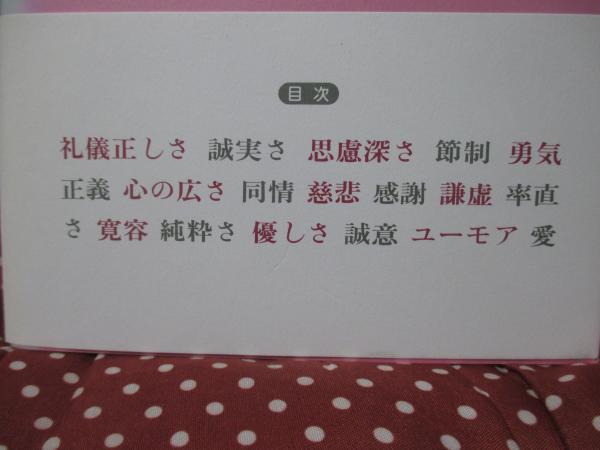 目次
礼儀正しさ 誠実さ 思慮深さ 節制 勇気
正義 心の広さ 同情 慈悲 感謝 謙虚 率直
さ 寛容 純粋さ 優しさ 誠意 ユーモア 愛